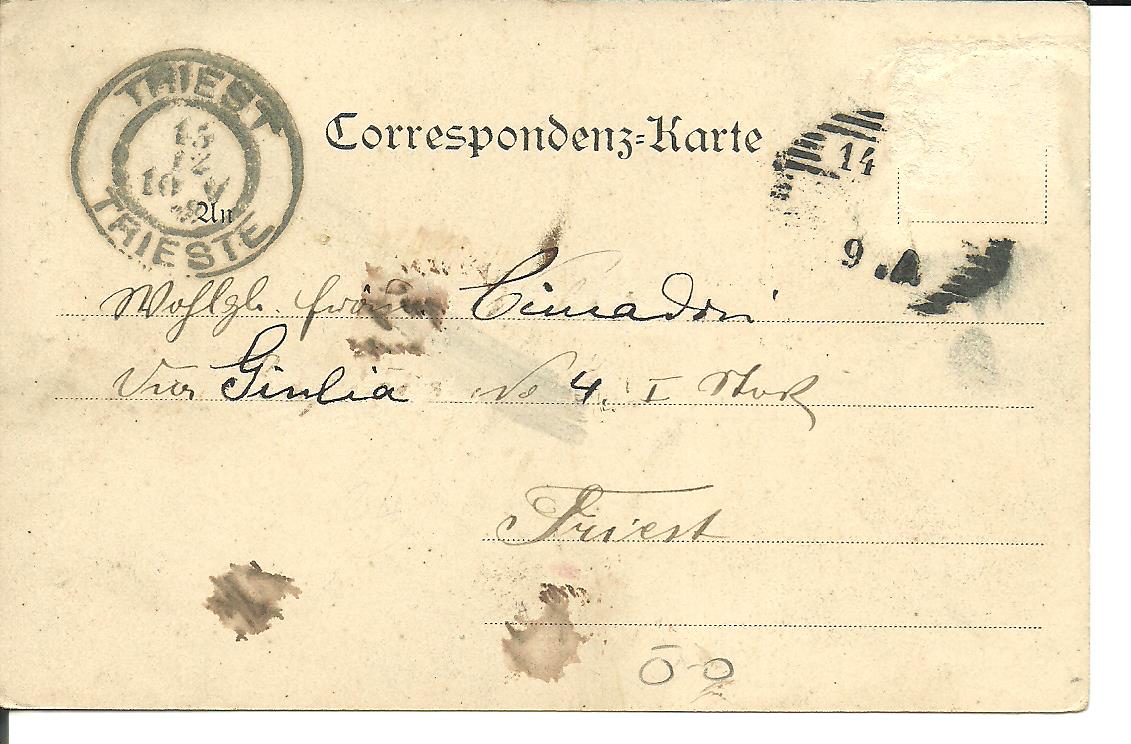 TRIEST
15
12
10 V
TRIESTE
Correspondenz-Karte
14
9 A
An
Wohlgb. Cimadori
Via Giulia No 4. I Stok
Triest